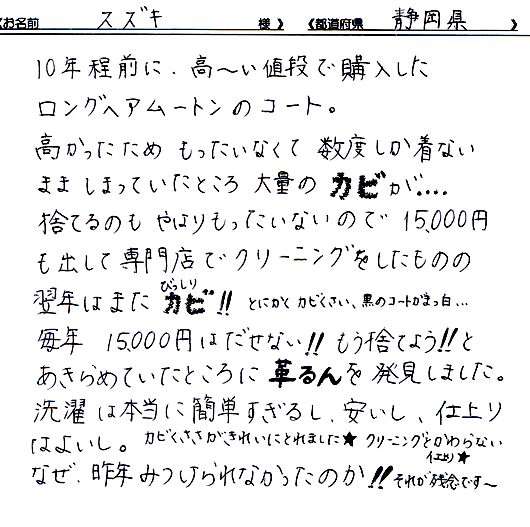 《お名前 スズキ 様》 《都道府県 静岡県 》
10年程前に、高〜い値段で購入した
ロングヘアムートンのコート。
高かったため もったいなくて 数度しか着ない
まま しまっていたところ 大量の カビが、、、、
捨てるのも やはりもったいないので 15,000円
も出して専門店でクリーニングをしたものの
びっしり
翌年はまた カビ!! とにかく カビくさい、黒のコートがまっ白…
毎年 15,000円はだせない!! もう捨てよう!!と
あきらめていたところに 革るんを 発見しました。
洗濯は本当に簡単すぎるし、安いし、仕上り
はよいし。 カビくささがきれいにとれました★ クリーニングとかわらない
仕上り★
なぜ、昨年みつけられなかったのか!! それが残念です〜